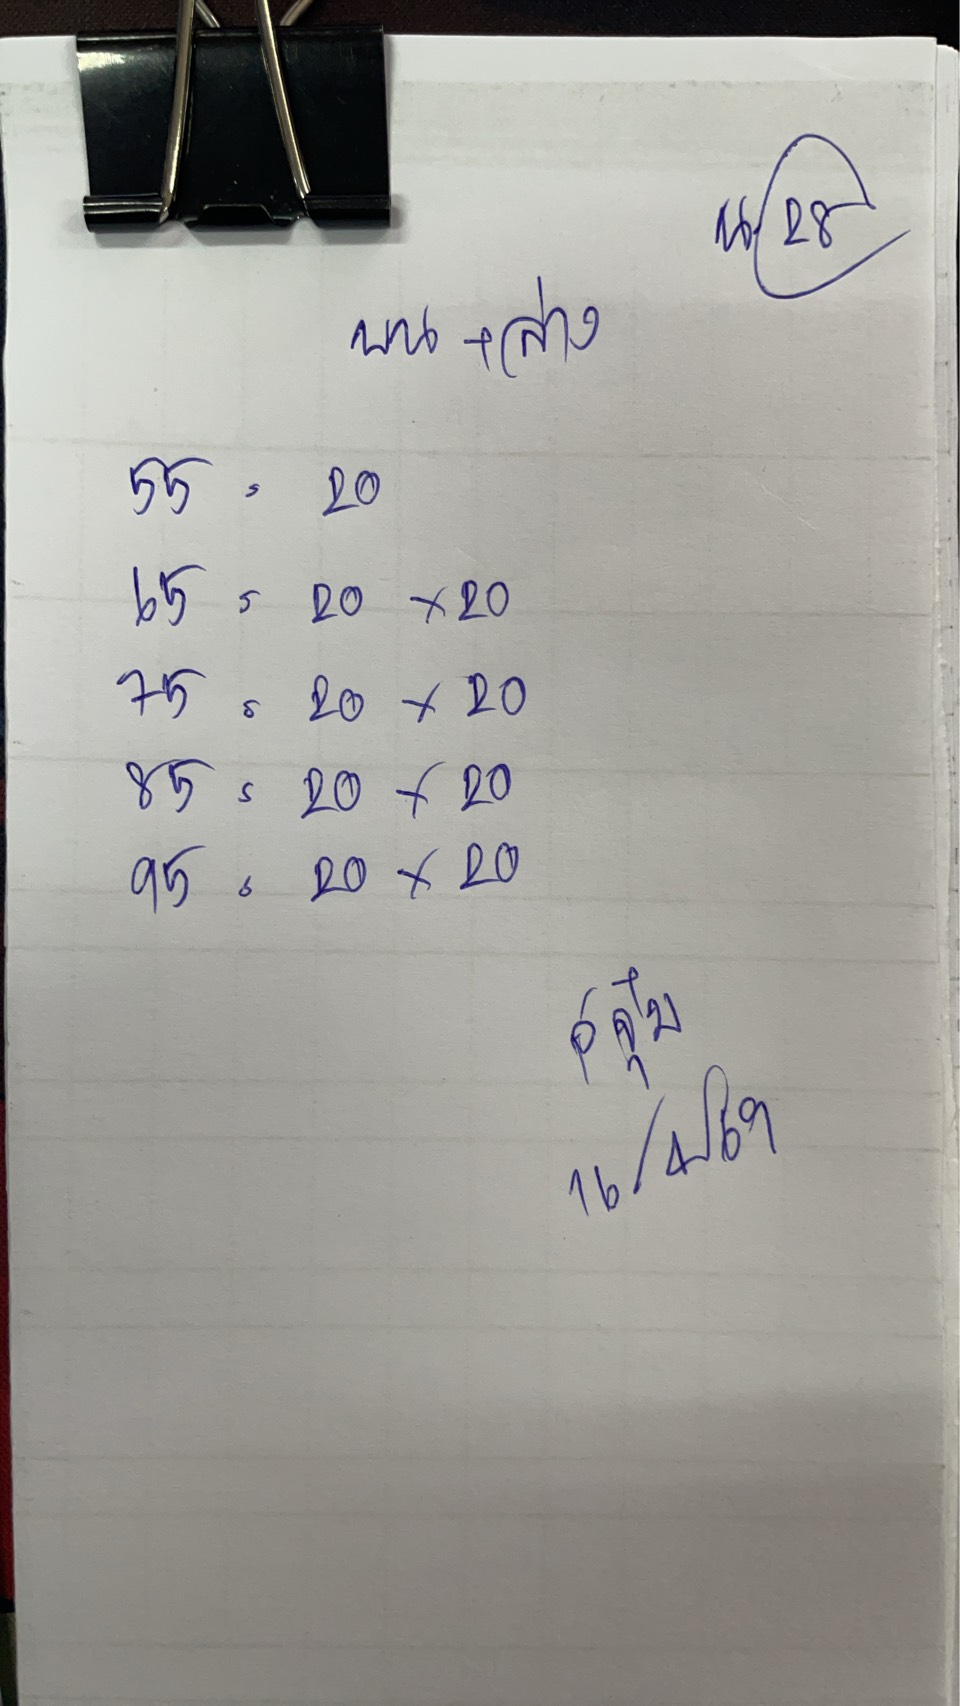 น 28
บน + ล่าง
55 = 20
65 = 20 × 20
75 = 20 × 20
85 = 20 × 20
95 = 20 × 20
16/4/69